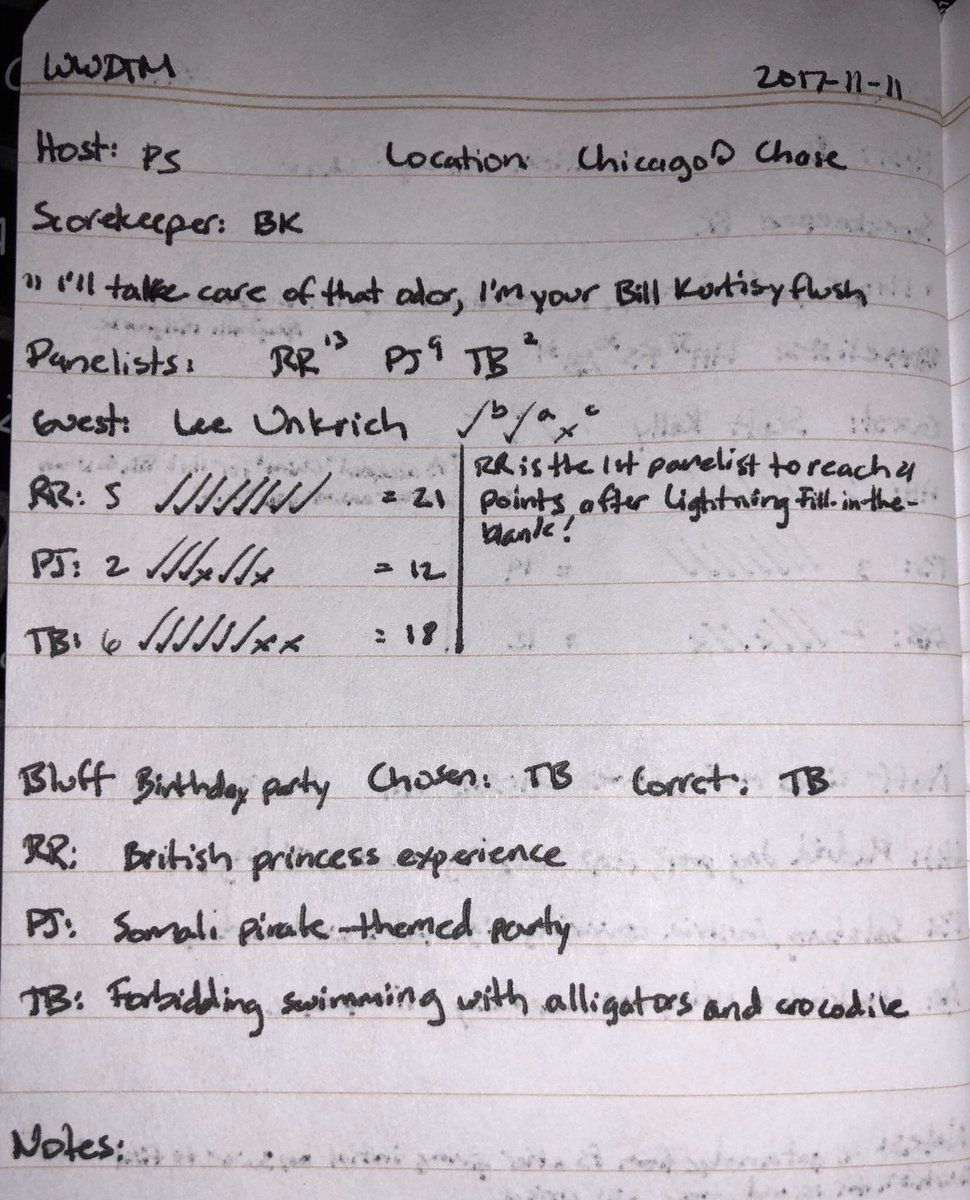 WWDTM 2017-11-11
Host: PS Location: Chicago Chase
Scorekeeper: BK
" I'll take care of that odor, I'm your Bill Kurtisy flush
Panelists: RR 13 PJ 9 TB 2
Guest: Lee Unkrich ✓b ✓a xc
RR: 5 ✓✓✓✓✓✓✓✓ = 21
RR is the 1st panelist to reach 21
points after Lightning Fill-in-the-
blank!
PJ: 2 ✓✓✓x✓✓x = 12
TB: 6 ✓✓✓✓✓✓xx = 18
Bluff Birthday party Chosen: TB Corret: TB
RR: British princess experience
PJ: Somali pirate-themed party
TB: Forbidding swimming with alligators and crocodile
Notes: